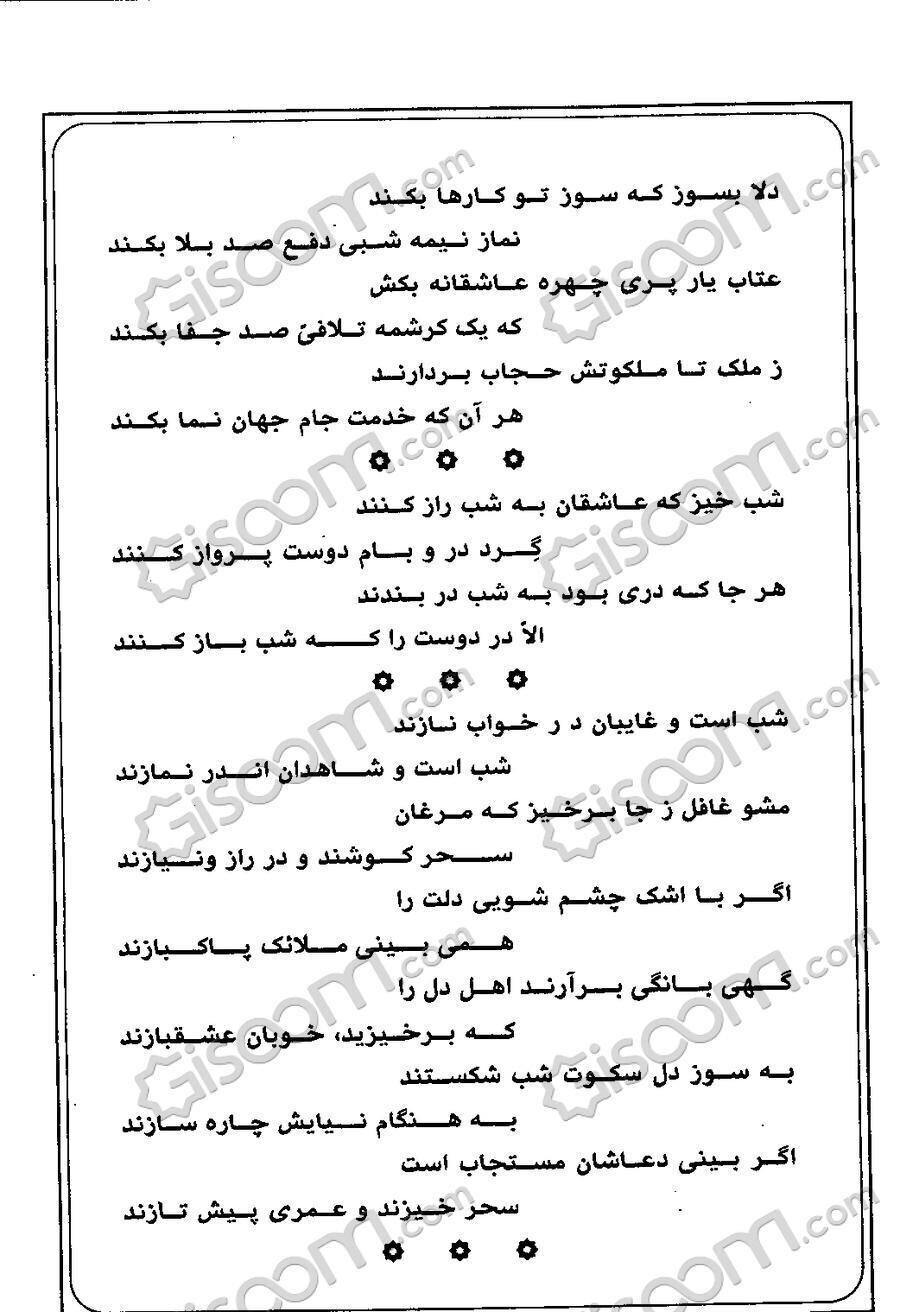 دلا بسوز که سوز تو کارها بکند
نماز نیمه شبی دفع صد بلا بکند
عتاب یار پری چهره عاشقانه بکش
که یک کرشمه تلافیّ صد جفا بکند
ز ملک تا ملکوتش حجاب بردارند
هر آن که خدمت جام جهان نما بکند
شب خیز که عاشقان به شب راز کنند
گِرد در و بام دوست پرواز کنند
هر جا که دری بود به شب در بندند
الاّ در دوست را که شب باز کنند
شب است و غایبان د ر خواب نازند
شب است و شاهدان اندر نمازند
مشو غافل ز جا برخیز که مرغان
سحر کوشند و در راز ونیازند
اگر با اشک چشم شویی دلت را
همی بینی ملائک پاکبازند
گهی بانگی برآرند اهل دل را
که برخیزید، خوبان عشقبازند
به سوز دل سکوت شب شکستند
به هنگام نیایش چاره سازند
اگر بینی دعاشان مستجاب است
سحر خیزند و عمری پیش تازند
Giscoom.com
Giscoom.com
Giscoom.com
Giscoom.com
Giscoom.com
Giscoom.com
Giscoom.com
Giscoom.com
Giscoom.com
Giscoom.com